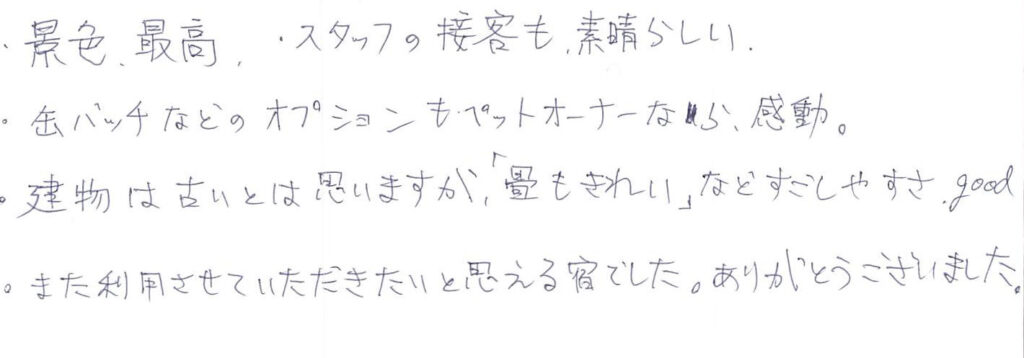 ・景色、最高、 ・スタッフの接客も、素晴らしい。
・缶バッチなどのオプションもペットオーナーなら、感動。
・建物は古いとは思いますが、「畳もきれい」などすごしやすさ、good
・また利用させていただきたいと思える宿でした。ありがとうございました。